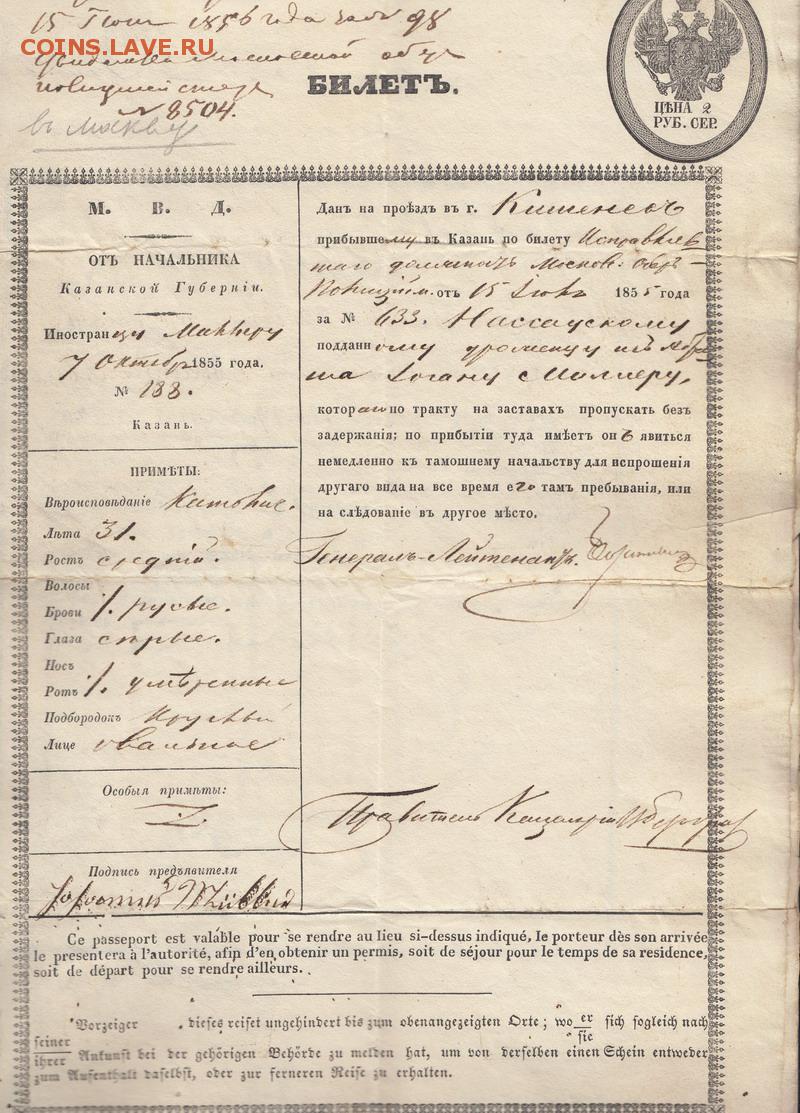 15 1856 года 98
COINS.LAVE.RU
№ 8504.
въ Москву
БИЛЕТЪ.
ЦѢНА 2
РУБ. СЕР.
М. В. Д.
ОТЪ НАЧАЛЬНИКА
Казанской Губерніи.
Иностранцу Миллеру
7 Октября 1855 года.
№ 188.
Казань.
ПРИМѢТЫ:
Вѣроисповѣданіе
Лѣта 31.
Ростъ средній.
Волосы
Брови русые.
Глаза сѣрые.
Носъ
Ротъ умѣренные
Подбородокъ круглый
Лице овальное
Особыя примѣты:
Подпись предъявителя
Данъ на проѣздъ въ г.
прибывшему въ Казань по билету Исправляв
шаго должность Москов: Оберъ-
Полиційм. отъ 15 1855 года
за № 633. Нассаускому
подданному уроженцу
Іогану Миллеру,
котораго по тракту на заставахъ пропускать безъ
задержанія; по прибытіи туда имѣетъ онъ явиться
немедленно къ тамошнему начальству для испрошенія
другаго вида на все время его тамъ пребыванія, или
на слѣдованіе въ другое мѣсто.
Генералъ-Лейтенантъ
Правитель Канцеляріи
Ce passeport est valable pour se rendre au lieu si-dessus indiqué, le porteur dès son arrivée
le presentera à l'autorité, afip d'en obtenir un permis, soit de séjour pour le temps de sa residence,
soit de départ pour se rendre ailleurs.
Vorzeiger dieses reiset ungehindert bis zum obenangezeigten Orte; wo er sich sogleich nach
sie
seiner
ihrer Ankunft bei der gehörigen Behörde zu melden hat, um von derselben einen Schein entweder
zum Aufenthalt daselbst, oder zur ferneren Reise zu erhalten.